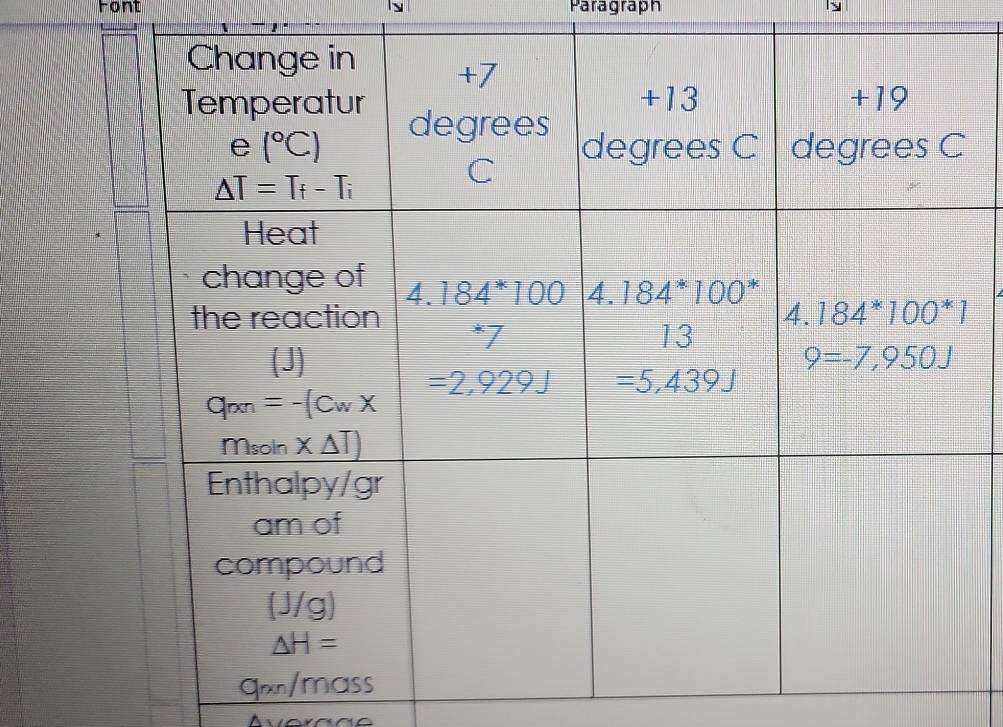 Font
Paragraph
Change in
Temperatur
e (°C)
ΔT = Tf - Ti
+7
degrees
C
+13
degrees C
+19
degrees C
Heat
change of
the reaction
(J)
qrxn = -(Cw x
msoln x ΔT)
4.184*100
*7
=2,929J
4.184*100*
13
=5,439J
4.184*100*1
9=-7,950J
Enthalpy/gr
am of
compound
(J/g)
ΔH =
qrxn/mass
Average